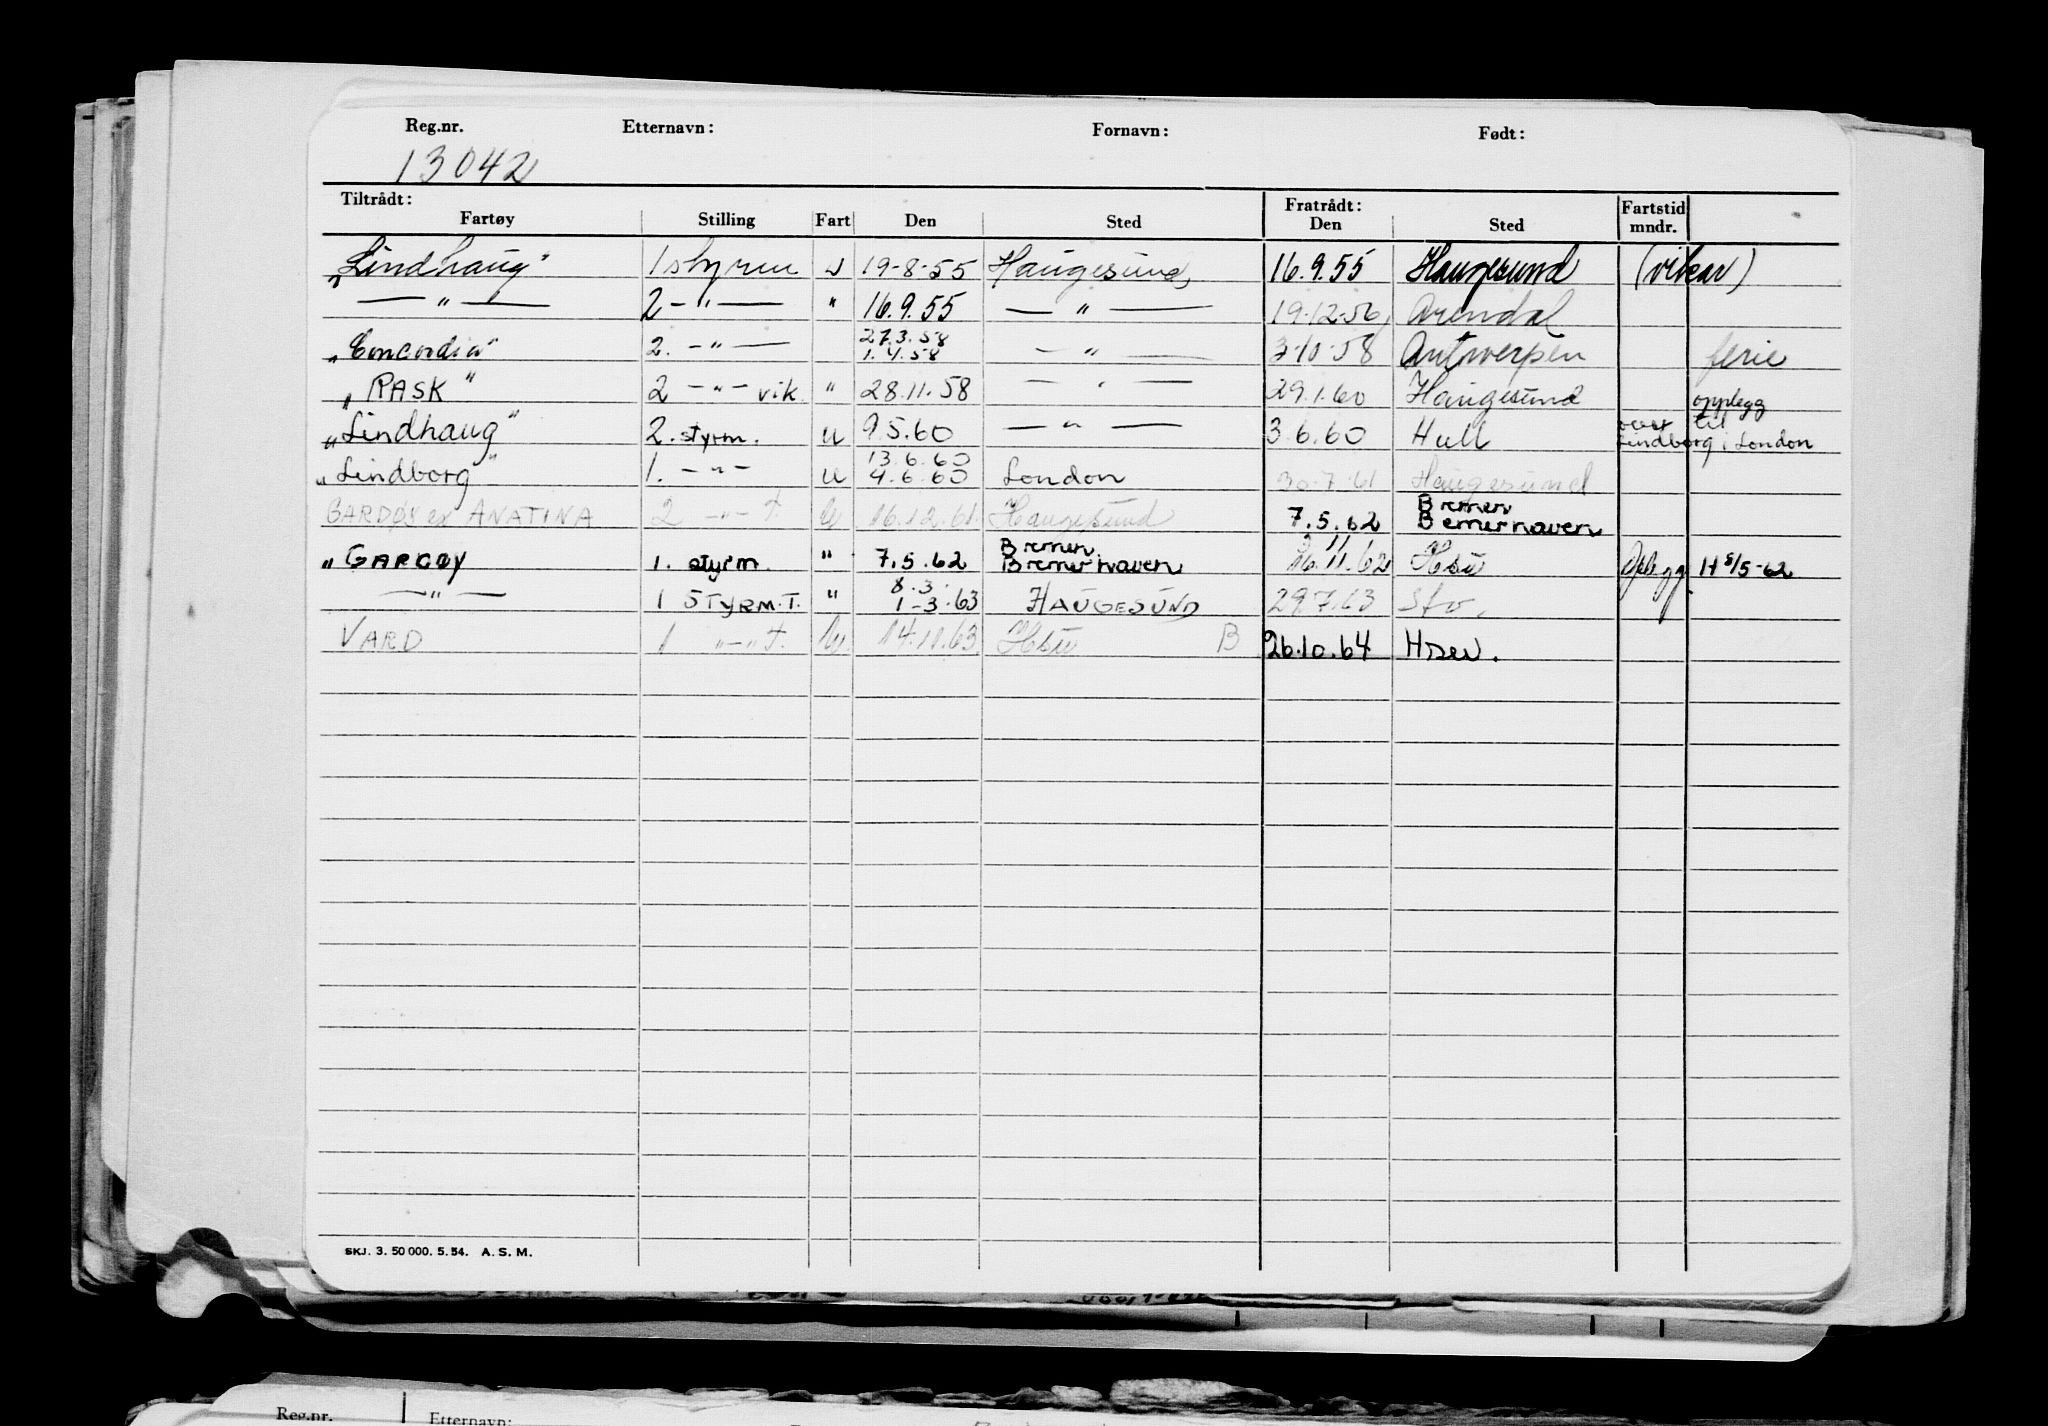 Reg.nr. Etternavn: Fornavn: Født:
13042
Tiltrådt: Fratrådt: Fartstid
Fartøy Stilling Fart Den Sted Den Sted mndr.
„Lindhaug" 1 styrm u 19-8-55 Haugesund, 16.9.55 Haugesund (vikar)
— " — 2 - " — " 16.9.55 — " — 19-12-56 Arendal
27.3.58
„Concordia" 2. - " — 1.4.58 — " — 3-10-58 Antwerpen ferie
„RASK" 2 - " - vik. " 28.11.58 — " — 29.1.60 Haugesund
opplegg
„Lindhaug" 2. styrm. u 9.5.60 — " — 3.6.60 Hull over til
Lindborg i London
13.6.60
„Lindborg" 1. - " - u 4.6.60 London 30-7-61 Haugesund
Bremen
BARDØY ex ANATINA 2 - " - t U 16.12.61 Haugesund 7.5.62 Bremerhaven
Bremen
„GARDØY 1. styrm. " 7.5.62 Bremerhaven 16.11.62 Hsu Opplegg 11 5/5-62
8.3.
— " — 1 STYRM.T. " 1-3-63 HAUGESUND 29.7.63 Stv.
VARD 1 " - " t. U. 14.11.63 Hsu B 26.10.64
SKJ. 3. 50 000. 5. 54. A. S. M.
Reg.nr. Etternavn: